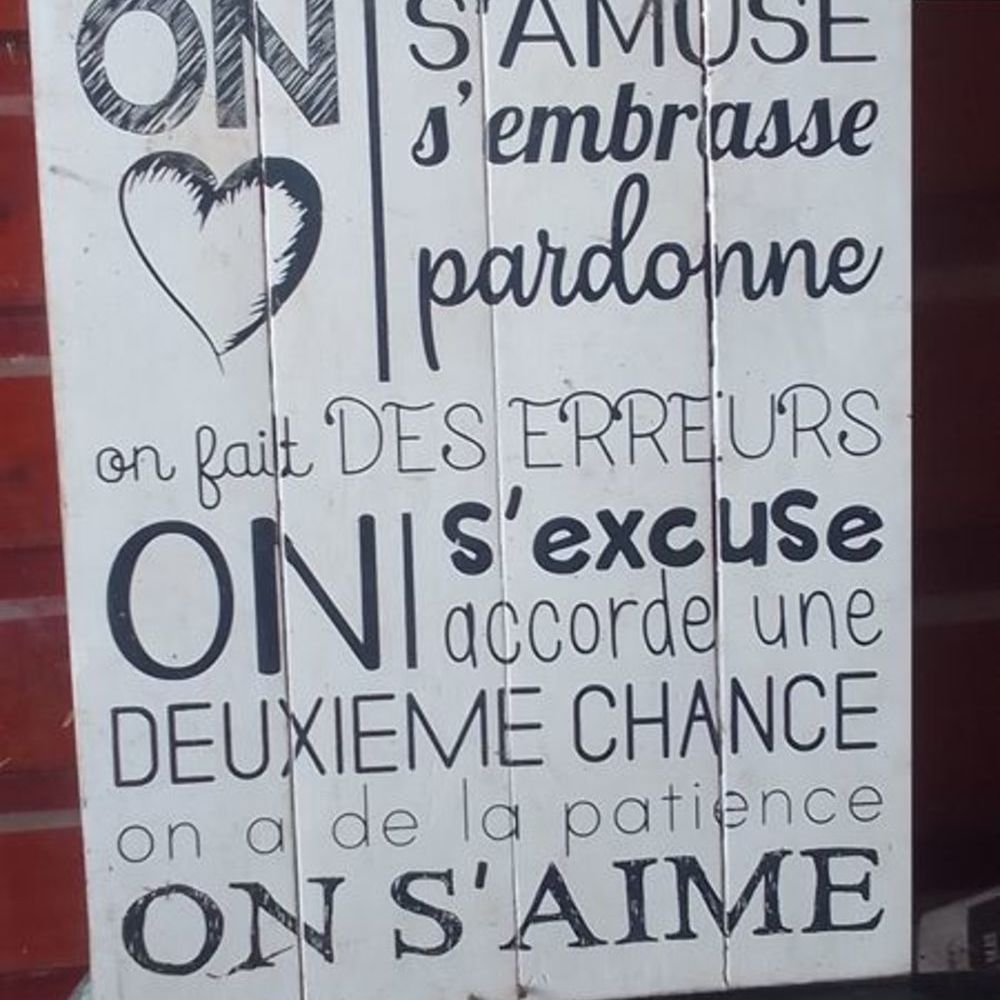 ON S'AMUSE
s'embrasse
pardonne
on fait DES ERREURS
ON s'excuse
accorde une
DEUXIEME CHANCE
on a de la patience
ON S'AIME